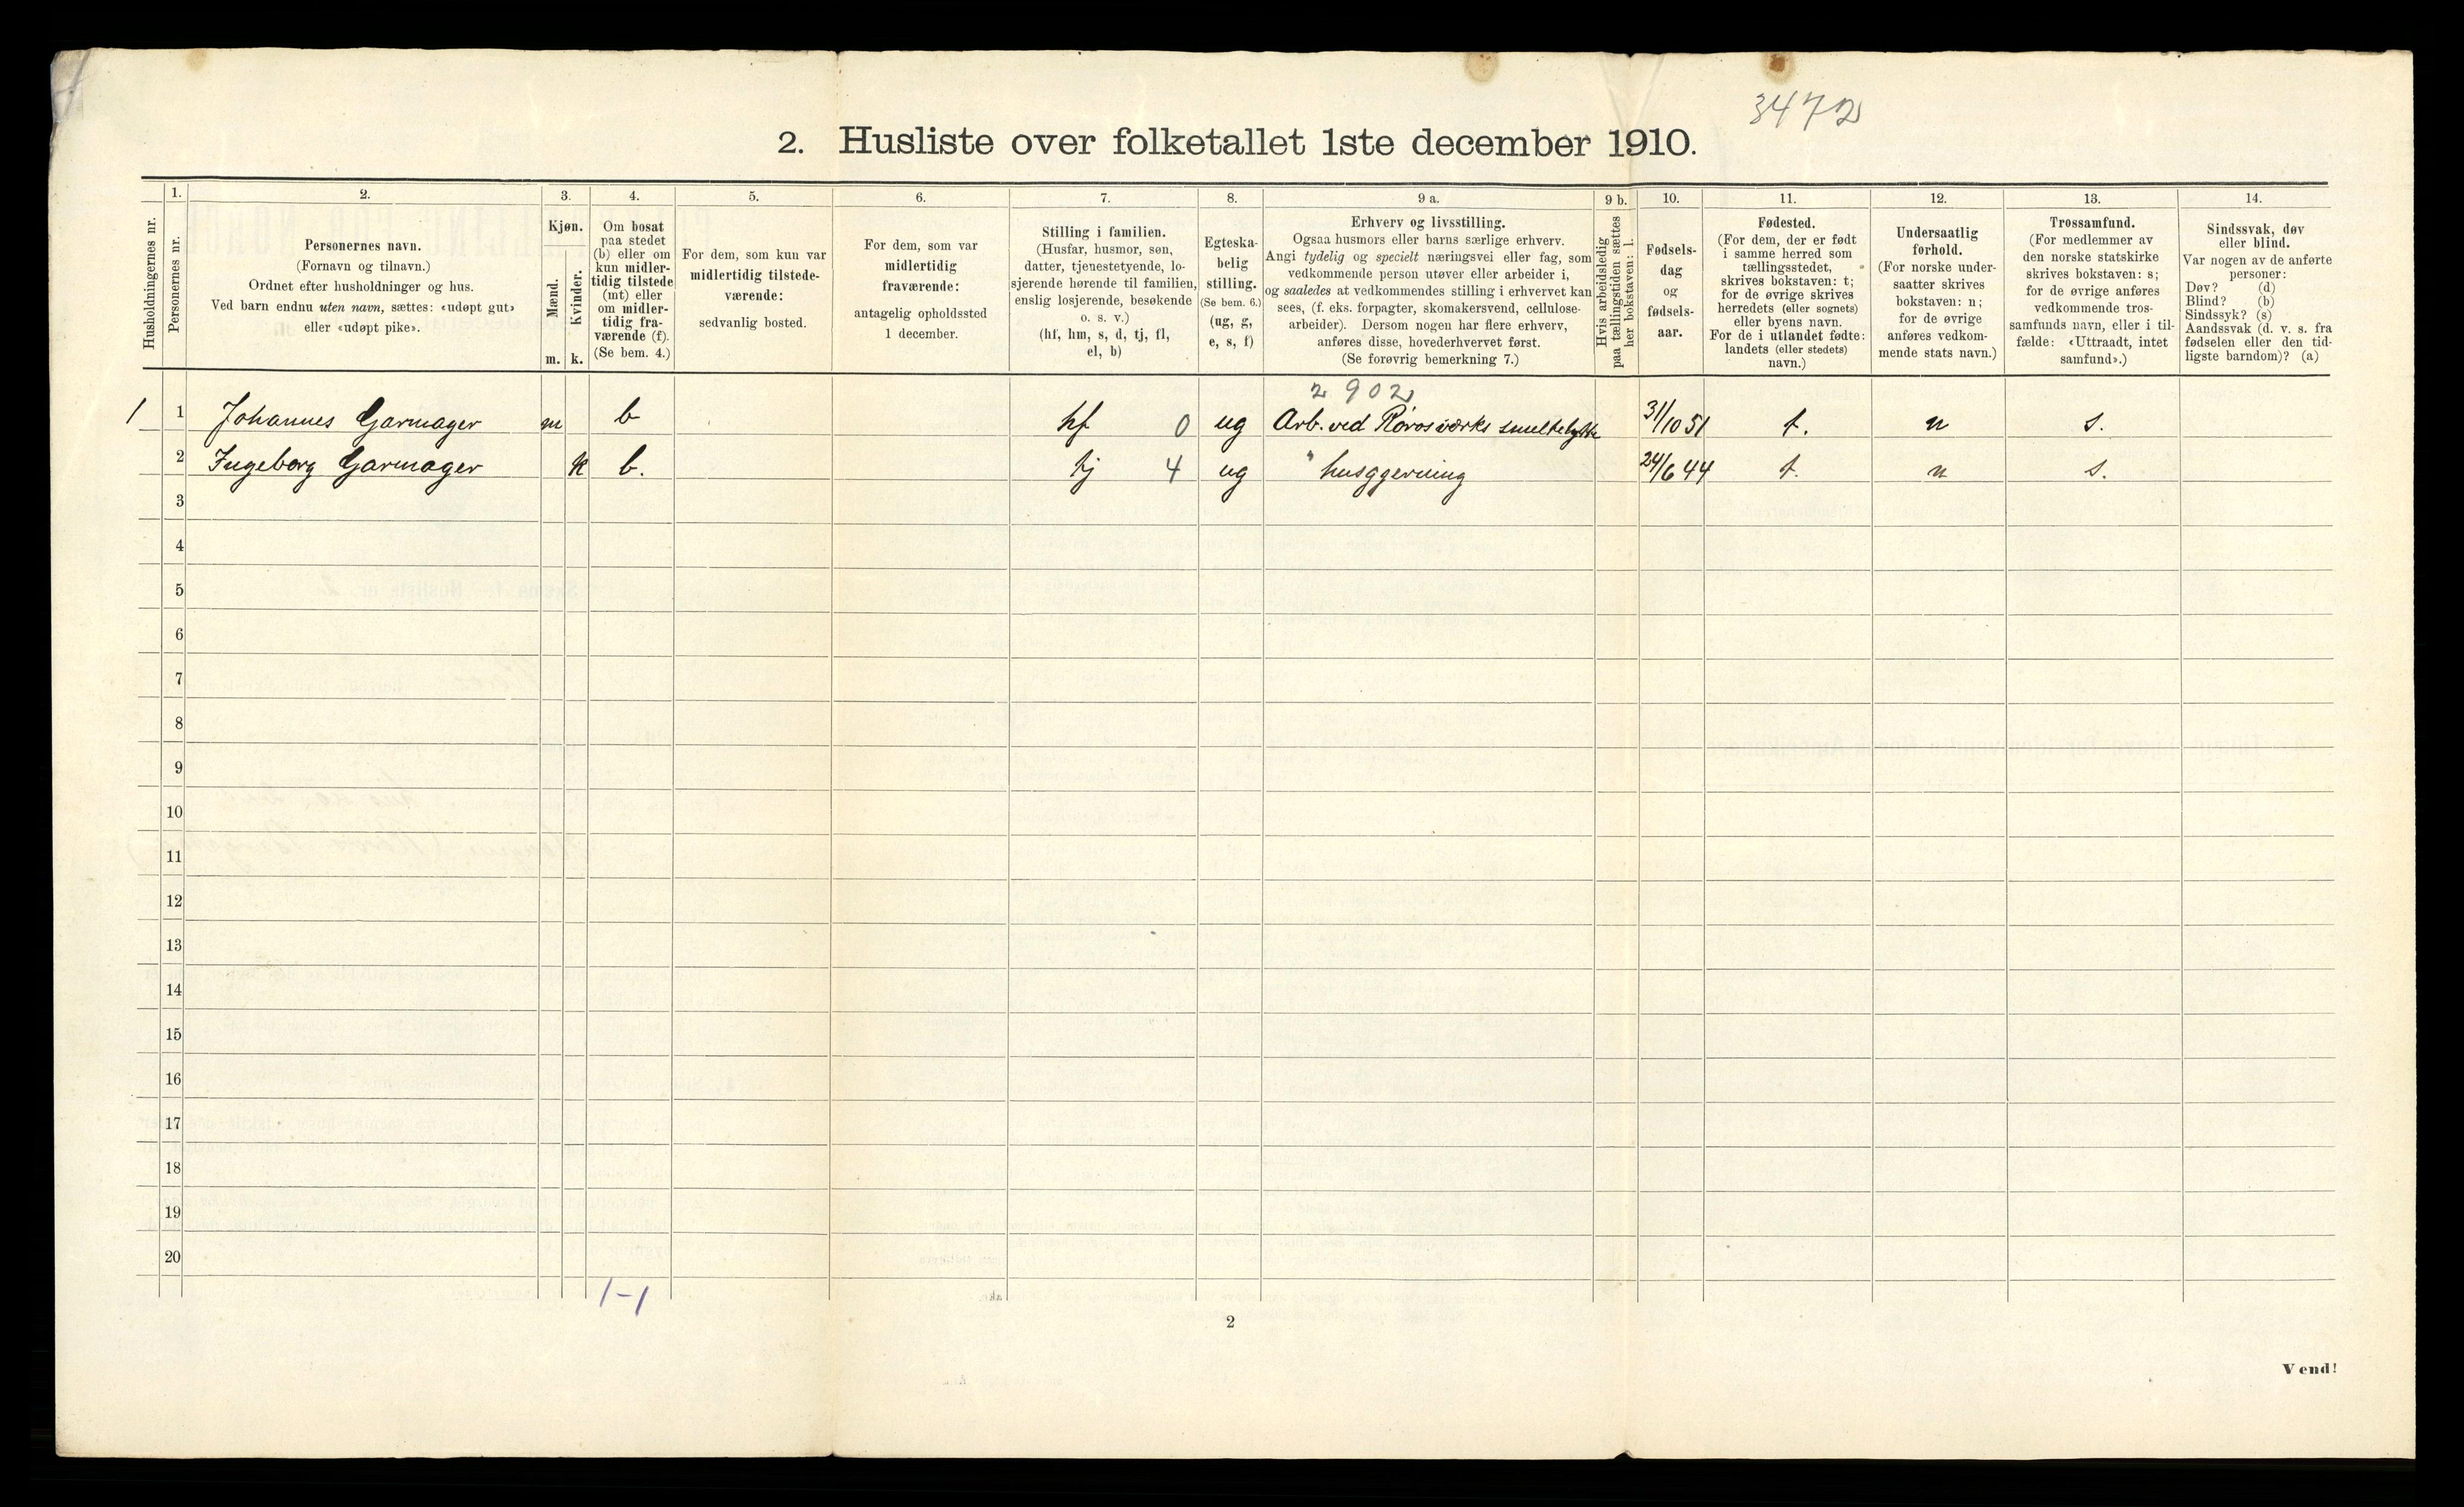 3472
2. Husliste over folketallet 1ste december 1910.
Husholdningernes nr.
1.
Personernes nr.
2.
Personernes navn.
(Fornavn og tilnavn.)
Ordnet efter husholdninger og hus.
Ved barn endnu uten navn, sættes: «udøpt gut»
eller «udøpt pike».
3.
Kjøn.
Mænd.
m.
Kvinder.
k.
4.
Om bosat
paa stedet
(b) eller om
kun midler-
tidig tilstede
(mt) eller
om midler-
tidig fra-
værende (f).
(Se bem. 4.)
5.
For dem, som kun var
midlertidig tilstede-
værende:
sedvanlig bosted.
6.
For dem, som var
midlertidig
fraværende:
antagelig opholdssted
1 december.
7.
Stilling i familien.
(Husfar, husmor, søn,
datter, tjenestetyende, lo-
sjerende hørende til familien,
enslig losjerende, besøkende
o. s. v.)
(hf, hm, s, d, tj, fl,
el, b)
8.
Egteska-
belig
stilling.
(Se bem. 6.)
(ug, g,
e, s, f)
9 a.
Erhverv og livsstilling.
Ogsaa husmors eller barns særlige erhverv.
Angi tydelig og specielt næringsvei eller fag, som
vedkommende person utøver eller arbeider i,
og saaledes at vedkommendes stilling i erhvervet kan
sees, (f. eks. forpagter, skomakersvend, cellulose-
arbeider). Dersom nogen har flere erhverv,
anføres disse, hovederhvervet først.
(Se forøvrig bemerkning 7.)
9 b.
Hvis arbeidsledig
paa tællingstiden sættes
her bokstaven: l.
10.
Fødsels-
dag
og
fødsels-
aar.
11.
Fødested.
(For dem, der er født
i samme herred som
tællingsstedet,
skrives bokstaven: t;
for de øvrige skrives
herredets (eller sognets)
eller byens navn.
For de i utlandet fødte:
landets (eller stedets)
navn.)
12.
Undersaatlig
forhold.
(For norske under-
saatter skrives
bokstaven: n;
for de øvrige
anføres vedkom-
mende stats navn.)
13.
Trossamfund.
(For medlemmer av
den norske statskirke
skrives bokstaven: s;
for de øvrige anføres
vedkommende tros-
samfunds navn, eller i til-
fælde: «Uttraadt, intet
samfund».)
14.
Sindssvak, døv
eller blind.
Var nogen av de anførte
personer:
Døv? (d)
Blind? (b)
Sindssyk? (s)
Aandssvak (d. v. s. fra
fødselen eller den tid-
ligste barndom)? (a)
2902
1 1 Johannes Garmager m b hf 0 ug Arb. ved Rørosværks smeltehytte 31/10 51 t. n s.
2 Ingeborg Garmager k b. tj 4 ug " husggerning 24/6 44 t. n s.
3
4
5
6
7
8
9
10
11
12
13
14
15
16
17
18
19
20
1-1
2
Vend!